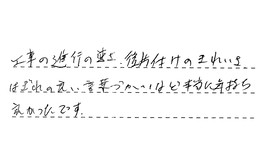 工事の進行の事、後片付けのきれいさ
はぎれの良い言葉づかいなど本当に気持ち
良かったです。